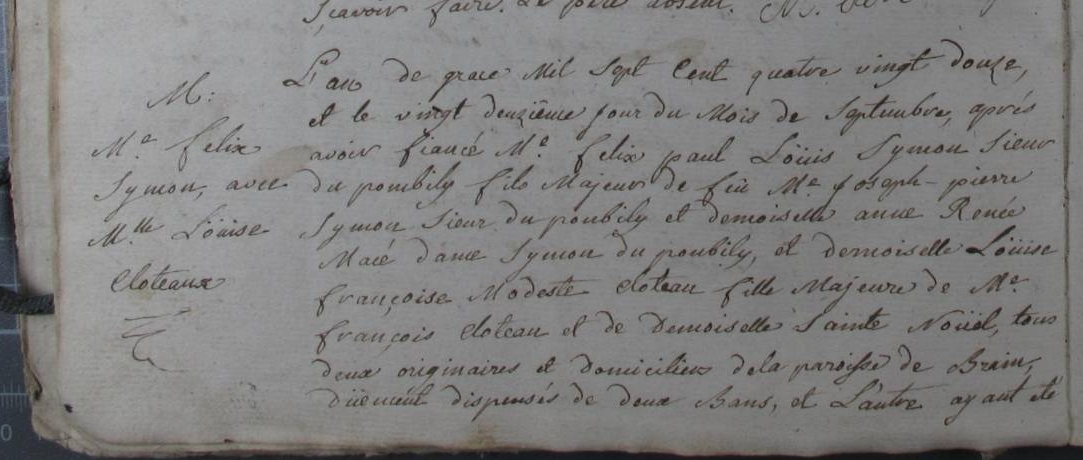 Sçavoir faire. Le père absent.
M:
Me Felix
Symon, avec
Mlle Löüise
Cloteaux
L'an de grace Mil Sept Cent quatre vingt douze,
et le vingt deuzième jour du Mois de Septembre, après
avoir fiancé Me felix paul Löüis Symon Sieur
du poubily fils Majeur de feü Me joseph-pierre
Symon Sieur du poubily et demoiselle anne Renée
Macé dame Symon du poubily, et demoiselle Löüise
françoise Modeste Cloteau fille Majeure de Me
françois Cloteau et de Demoiselle Sainte Noüel, tous
deux originaires et domiciliers dela paroisse de Brain,
düement dispensés de deux Bans, et L'autre ayant été